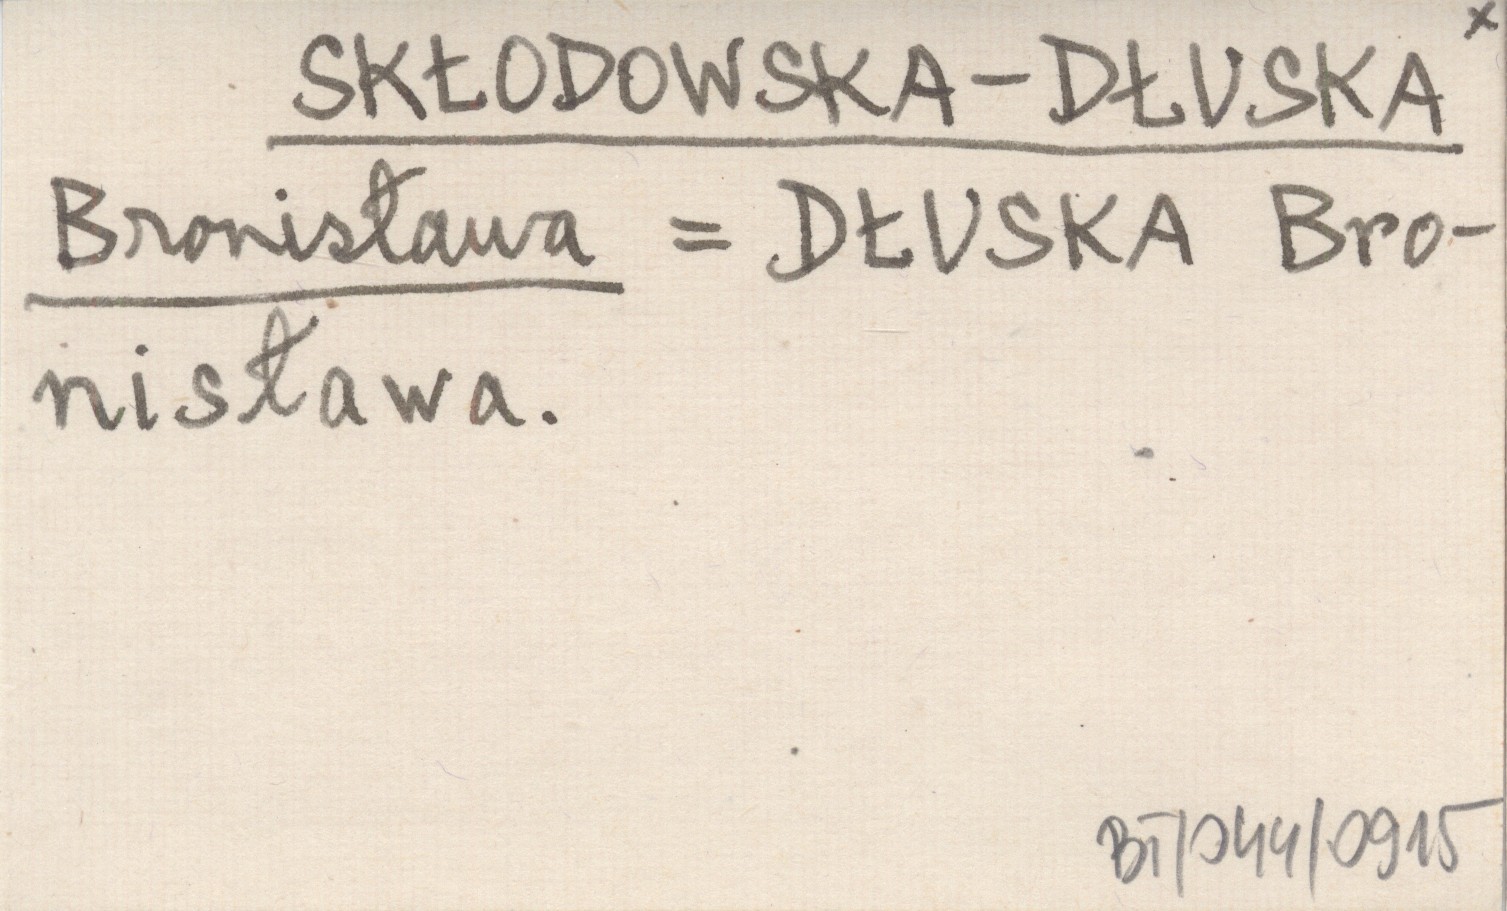 x
SKŁODOWSKA-DŁUSKA
Bronisława = DŁUSKA Bro-
nisława.
BT/044/0915